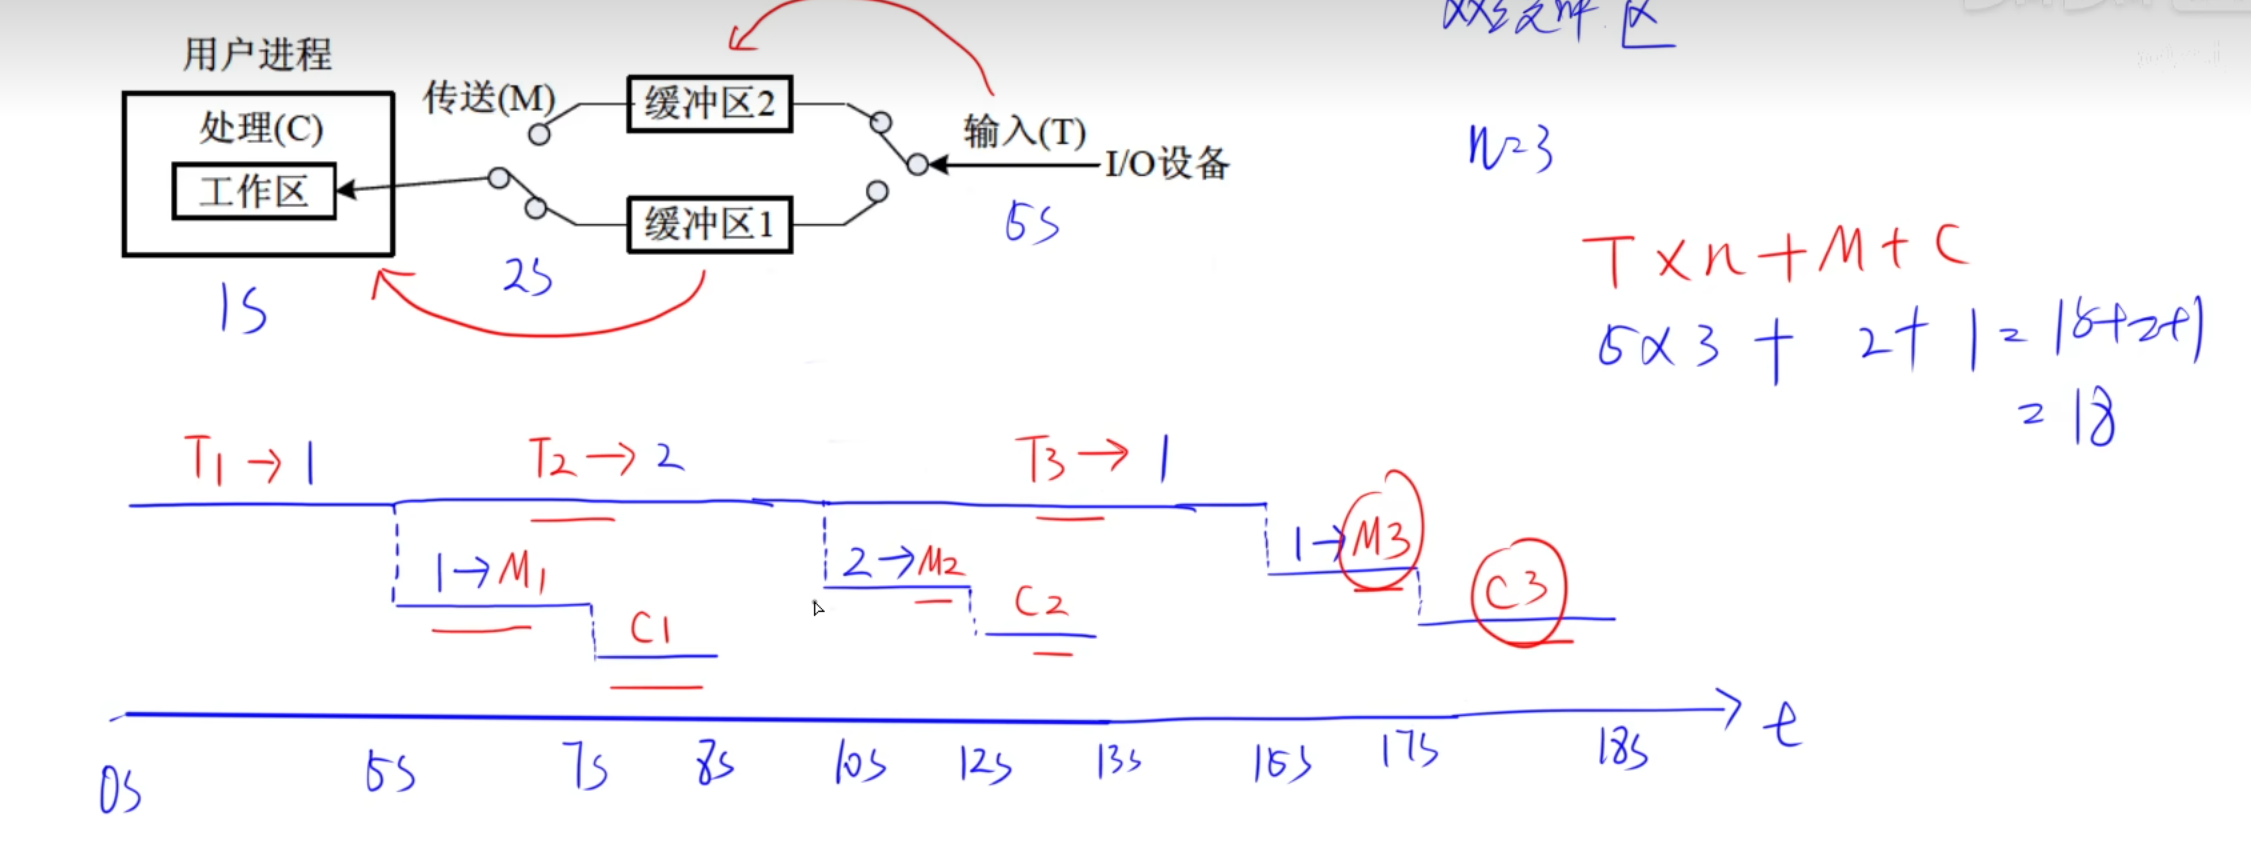 双缓冲区
用户进程
处理(C)
工作区
传送(M)
缓冲区2
缓冲区1
输入(T)
I/O设备
1S
2S
5S
n=3
T×n+M+C
5×3+2+1=15+2+1
=18
T1→1
T2→2
T3→1
1→M1
C1
2→M2
C2
1→M3
C3
0S
5S
7S
8S
10S
12S
13S
15S
17S
18S
t